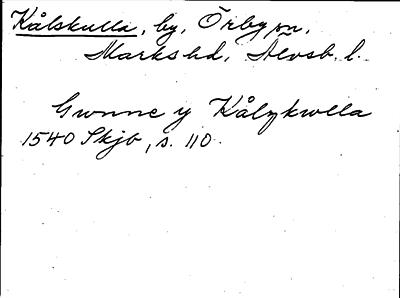 Kålskulla, by, Örby sn,
Marks hd, Älvsb. l.
Gunne y Kålzkwlla
1540 Skjb, s. 110.